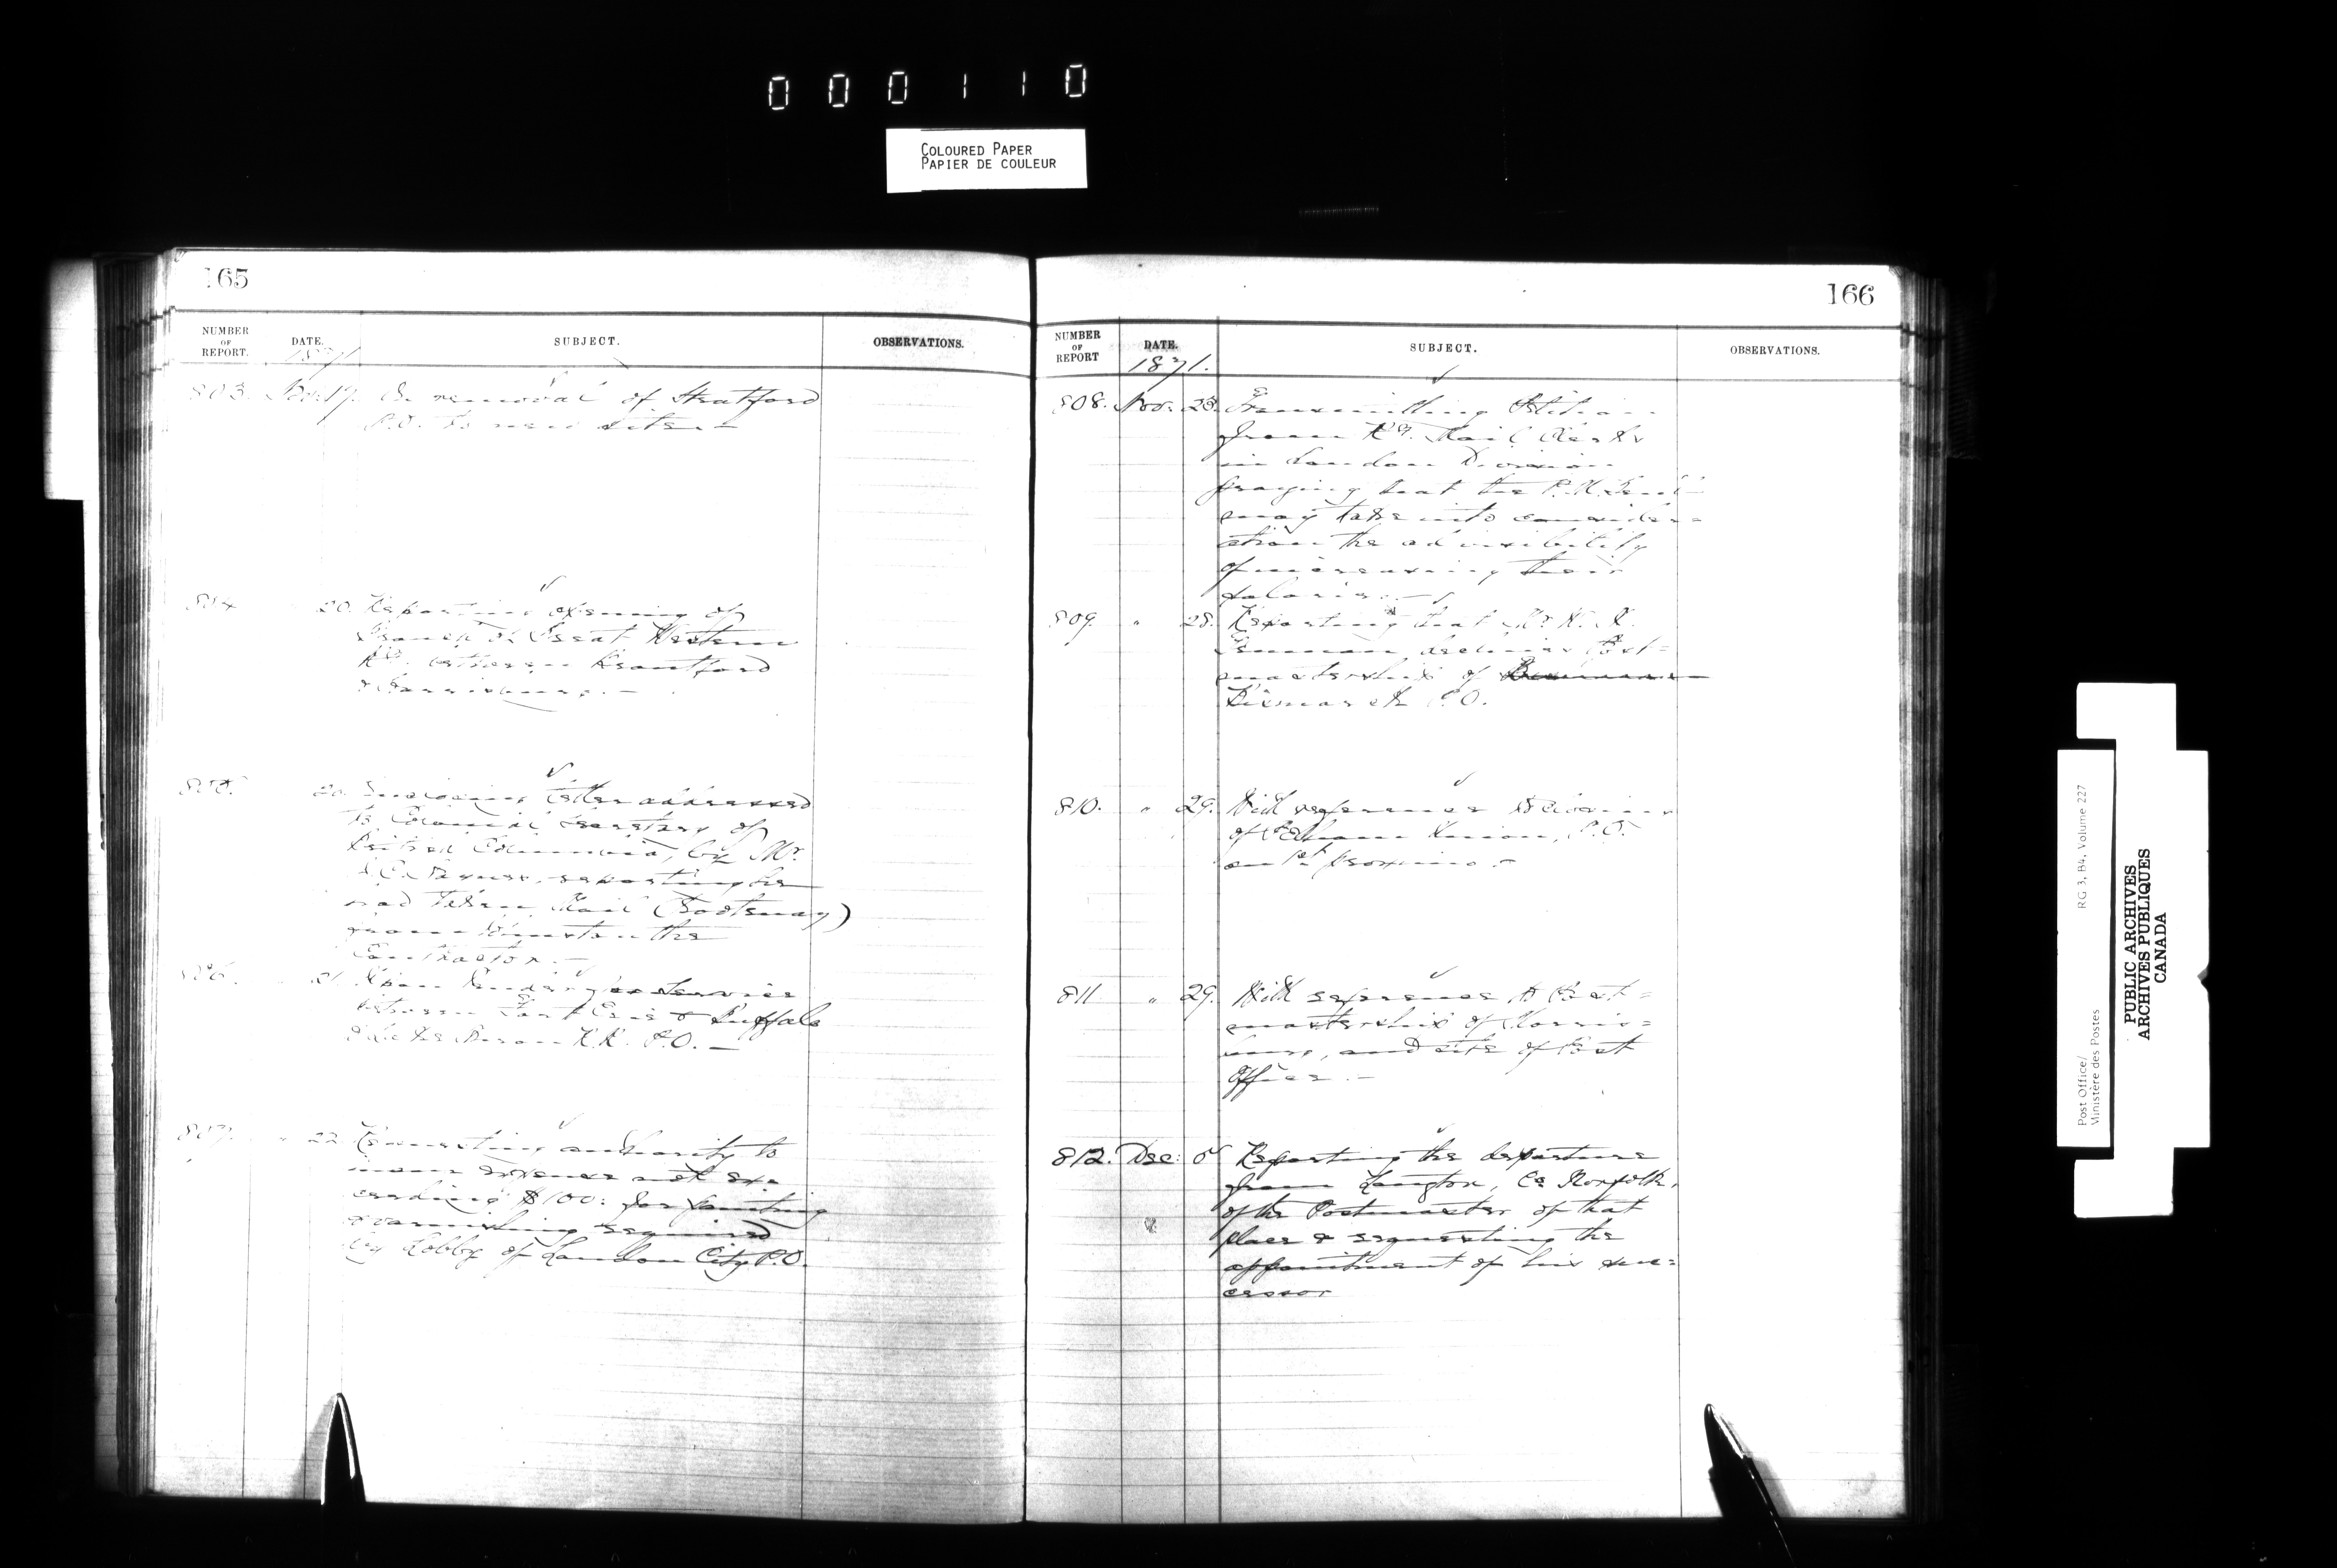 000110
COLOURED PAPER
PAPIER DE COULEUR
165
NUMBER OF REPORT.
DATE.
SUBJECT.
OBSERVATIONS.
1871
803. Nov. 17. On removal of Stratford
P.O. to new site. —
804 20. Reporting opening of
Branch of Great Western
Ry. between Brantford
&
805. 20. Enclosing letter addressed
to Colonial Secretary of
British Columbia, by Mr.
reporting he
had taken Mail (Kootenay)
from the
Contractor. —
806. 21. Upon Tender for Service
between Fort Erie & Buffalo
R.R. P.O. —
807. " 22. Requesting authority to
incur expense not ex=
ceeding $100: for painting
& varnishing required
by Lobby of London City P.O.
166
NUMBER OF REPORT
DATE.
SUBJECT.
OBSERVATIONS.
1871.
808. Nov: 23. Transmitting Petition
from Ry. Mail Clerks
in London Division
praying that the P.M. Genl
may take into consider=
ation the advisibility
of increasing their
salaries. —
809. " 28. Reporting that Mr.
declines Post=
mastership of
Bismarck P.O.
810. " 29. With reference to closing
of Pelham Union, P.O.
on 1st proximo. —
811 " 29. With reference to Post=
mastership of Morris=
, and site of Post
Office. —
812. Dec: 5 Reporting the departure
from Langton, Co Norfolk,
of the Postmaster of that
place & requesting the
appointment of his suc=
cessor
Post Office/ RG 3, B4, Volume 227
Ministère des Postes
PUBLIC ARCHIVES
ARCHIVES PUBLIQUES
CANADA